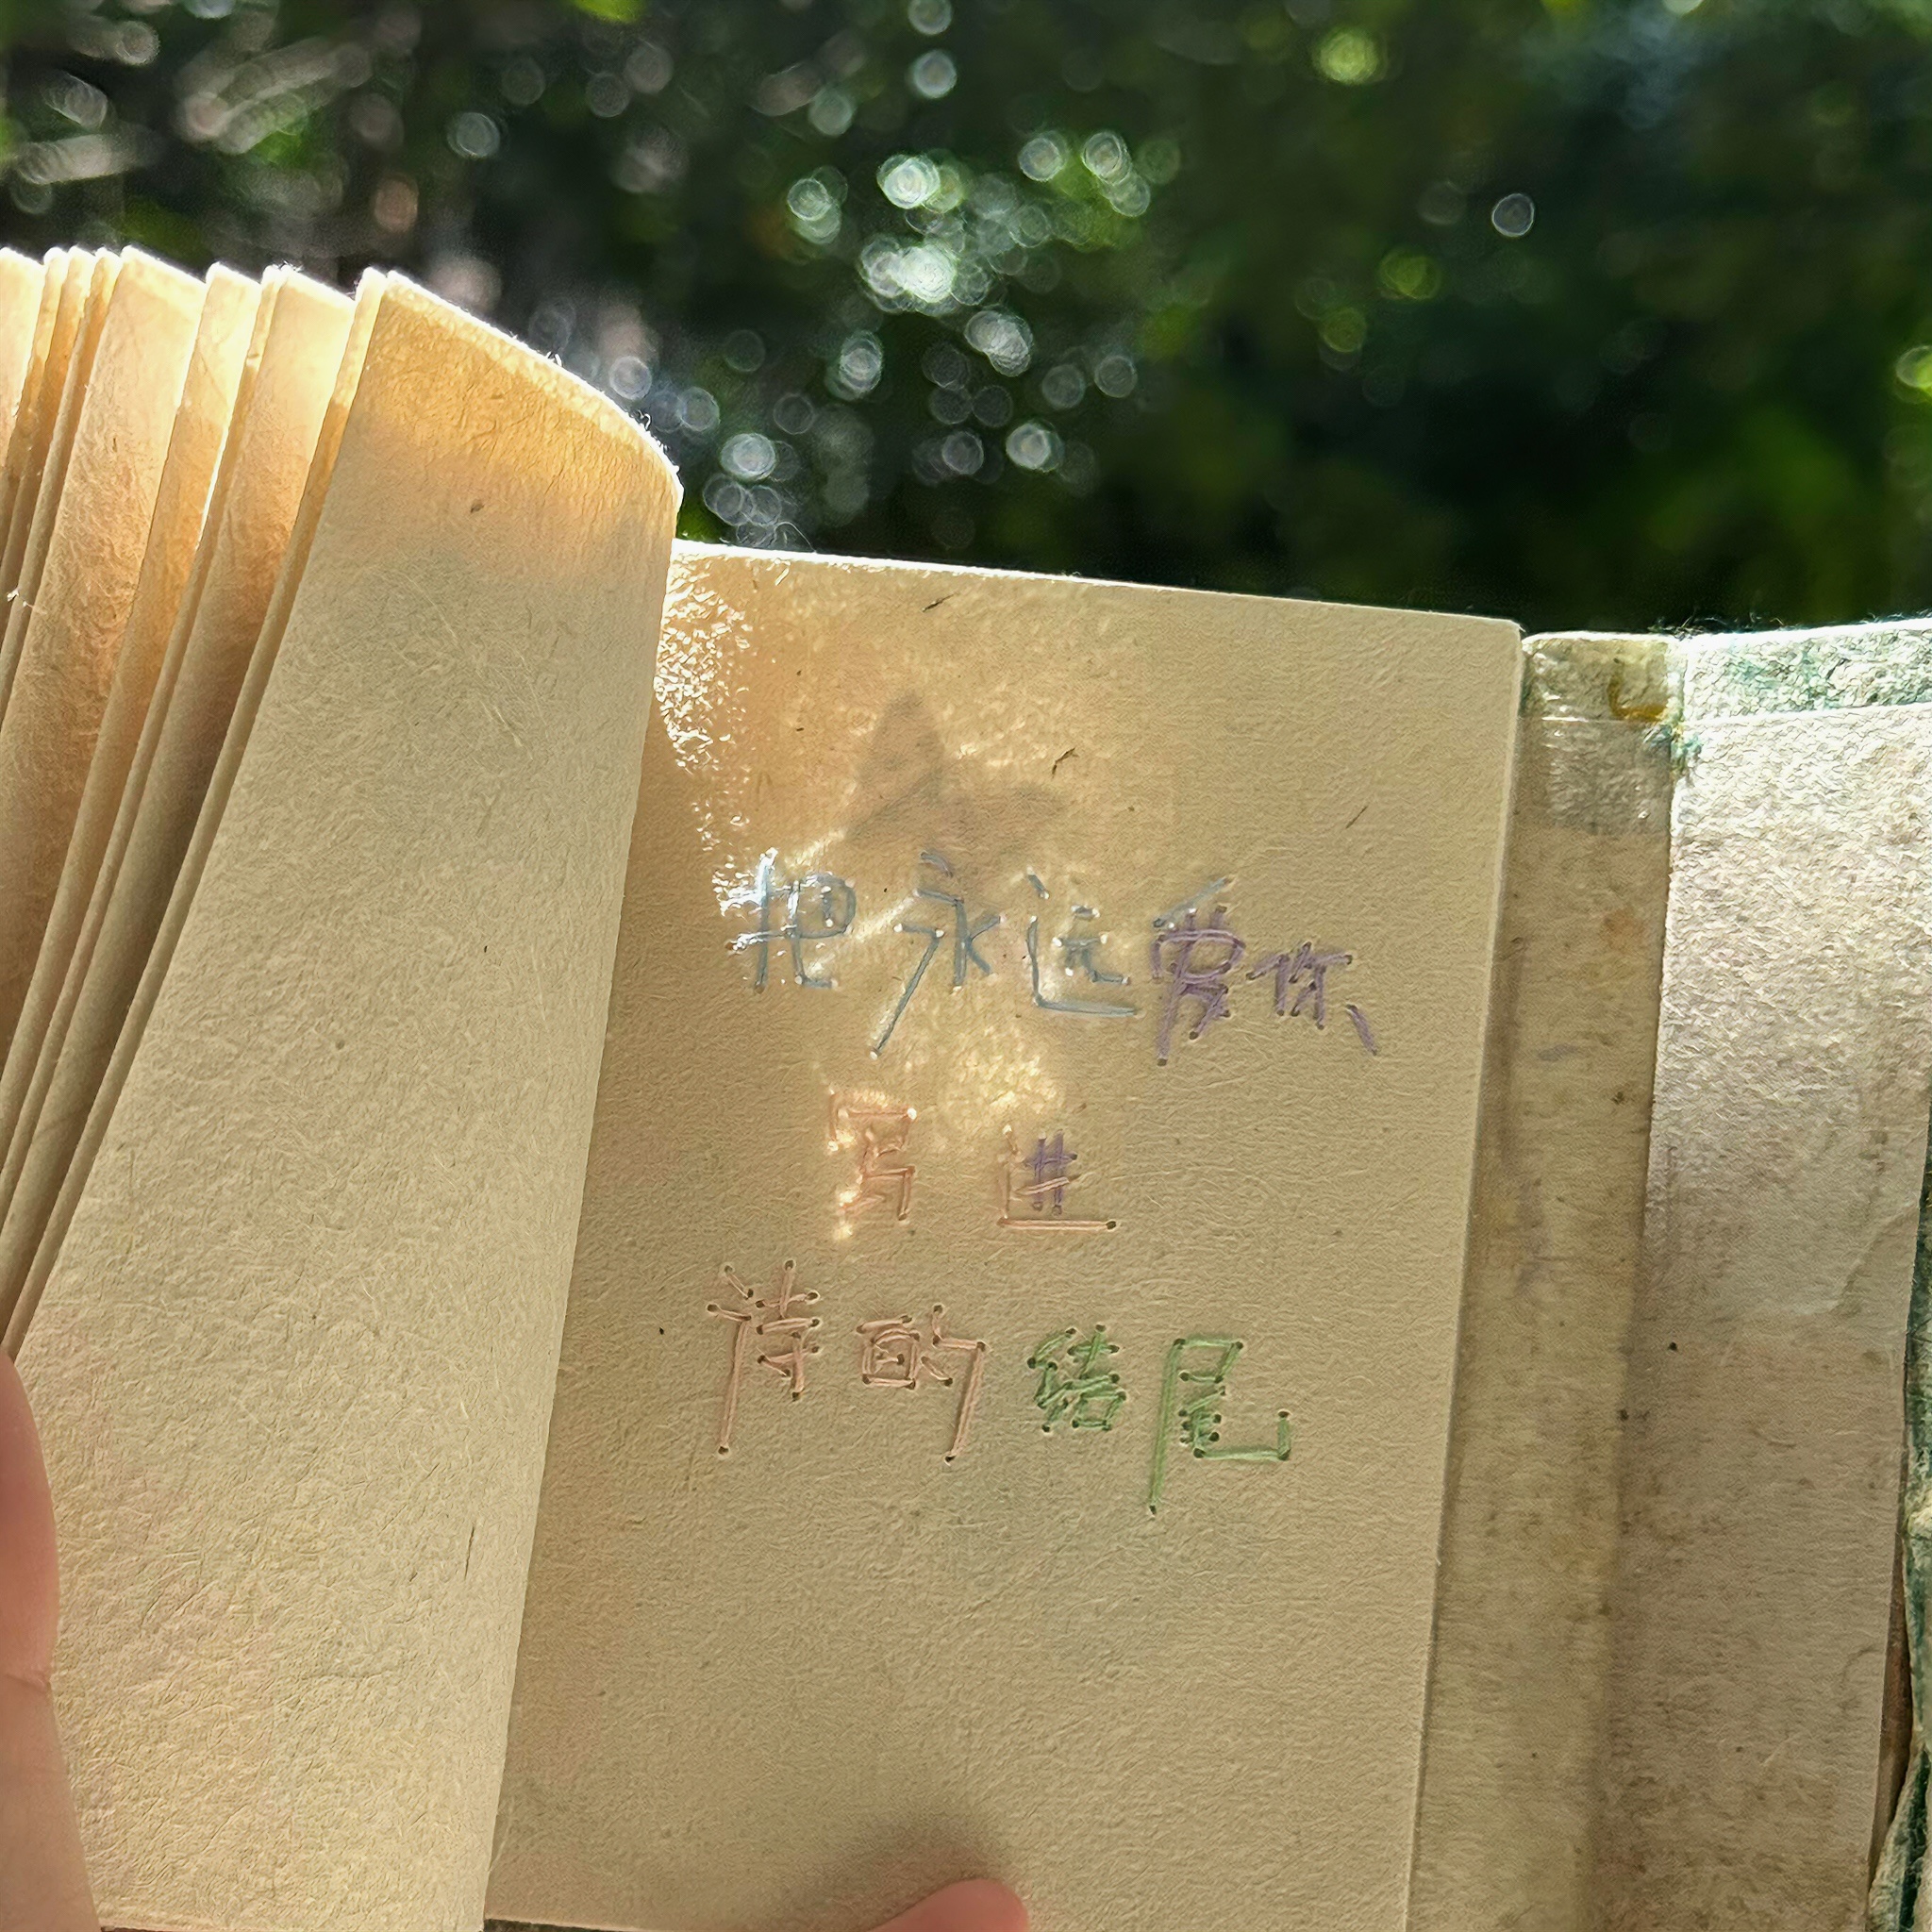 把永远爱你
写进
诗的结尾